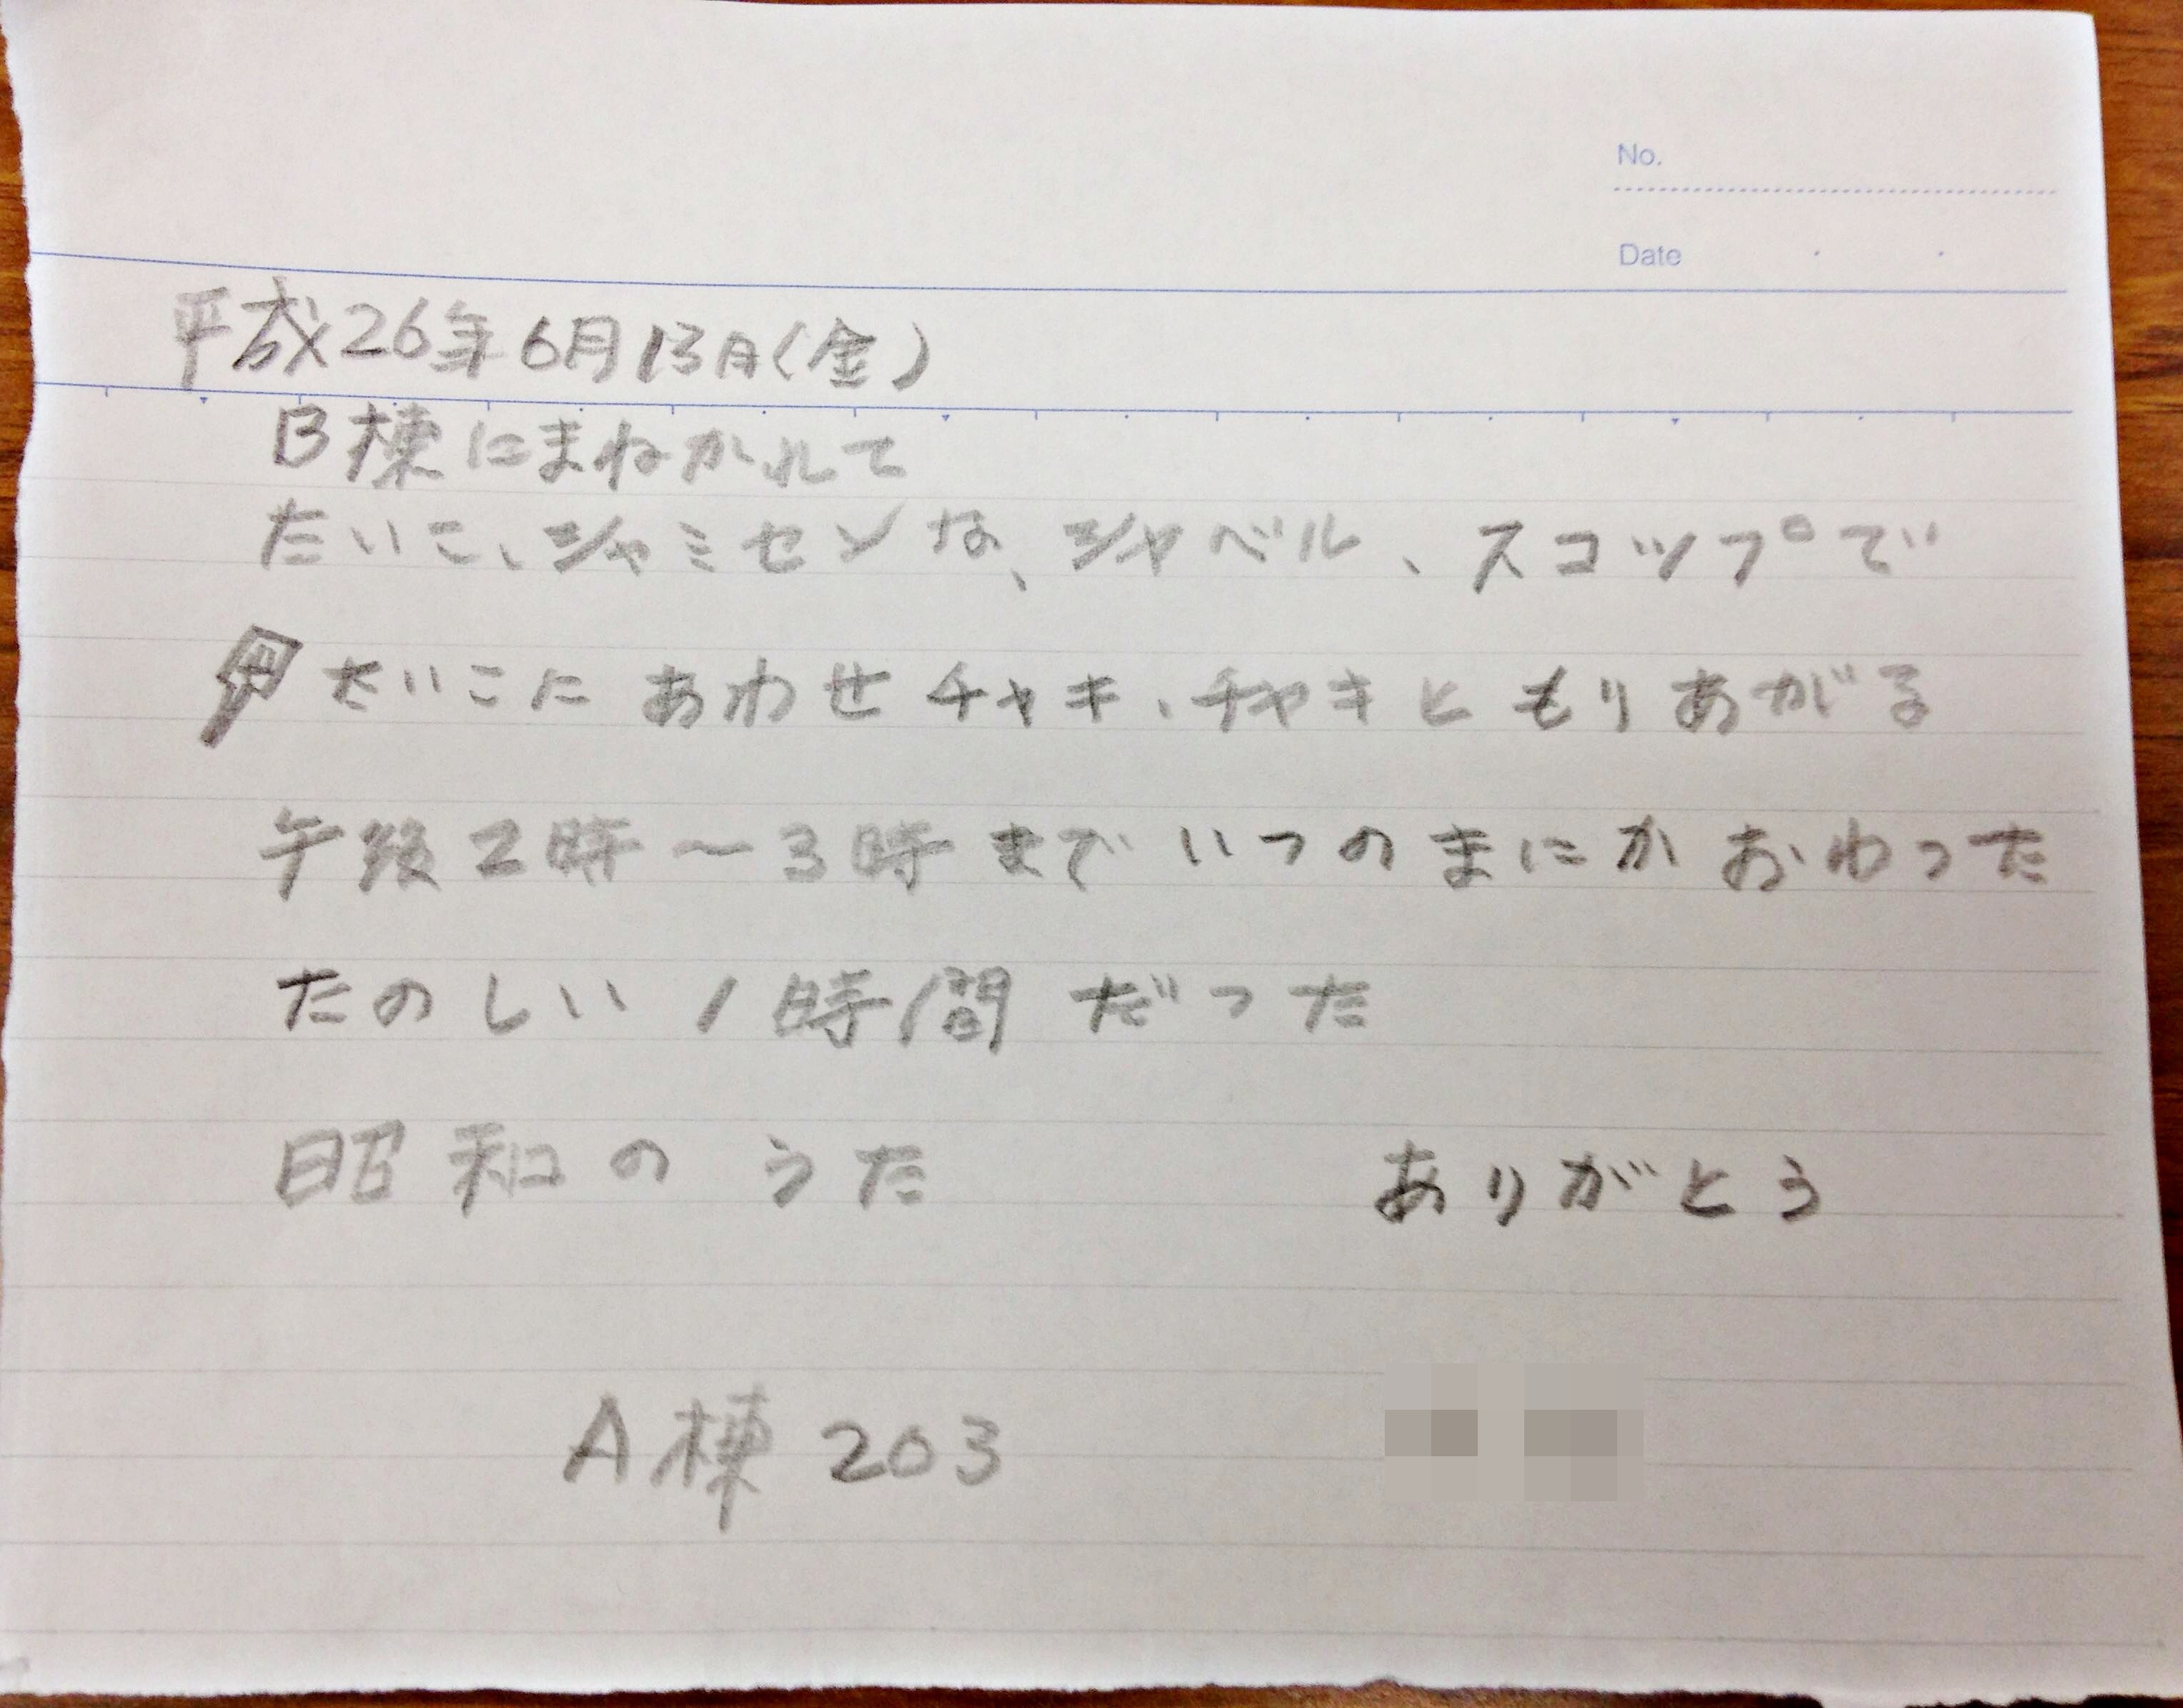 No.
Date
平成26年6月13日(金)
B棟にまねかれて
たいこ、シャミセンな、シャベル、スコップで
たいこに あわせ チャキ、チャキと もりあがる
午後2時〜3時まで いつのまにか おわった
たのしい 1時間 だった
昭和の うた ありがとう
A棟 203